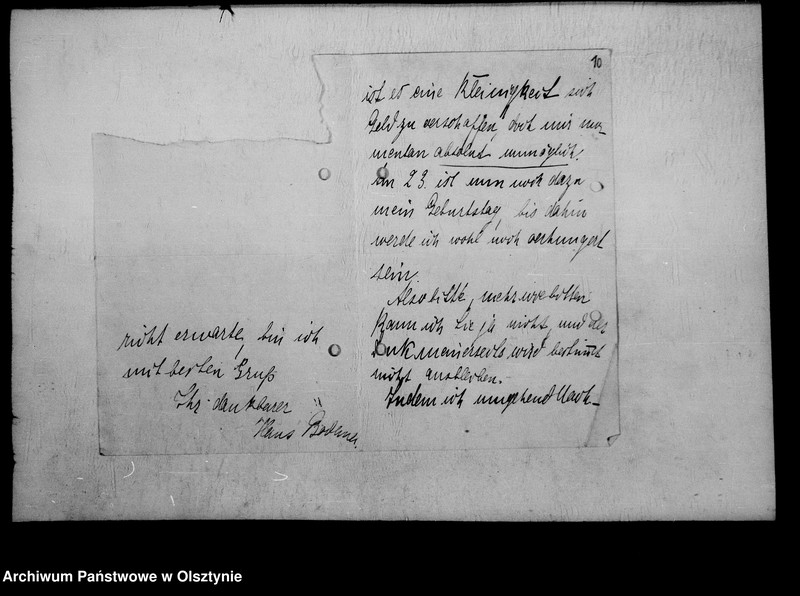 10
ist es eine Kleinigkeit sich
Geld zu verschaffen, doch mir mo-
mentan absolut unmöglich.
Am 23. ist nun noch dazu
mein Geburtstag, bis dahin
werde ich wohl noch verhungert
sein.
Also bitte, mehr wie bitten
kann ich Sie ja nicht, und der
Dank meinerseits wird bestimmt
nicht ausbleiben.
Indem ich umgehend Nach-
richt erwarte, bin ich
mit besten Gruß
Ihr dankbarer
Hans
Archiwum Państwowe w Olsztynie